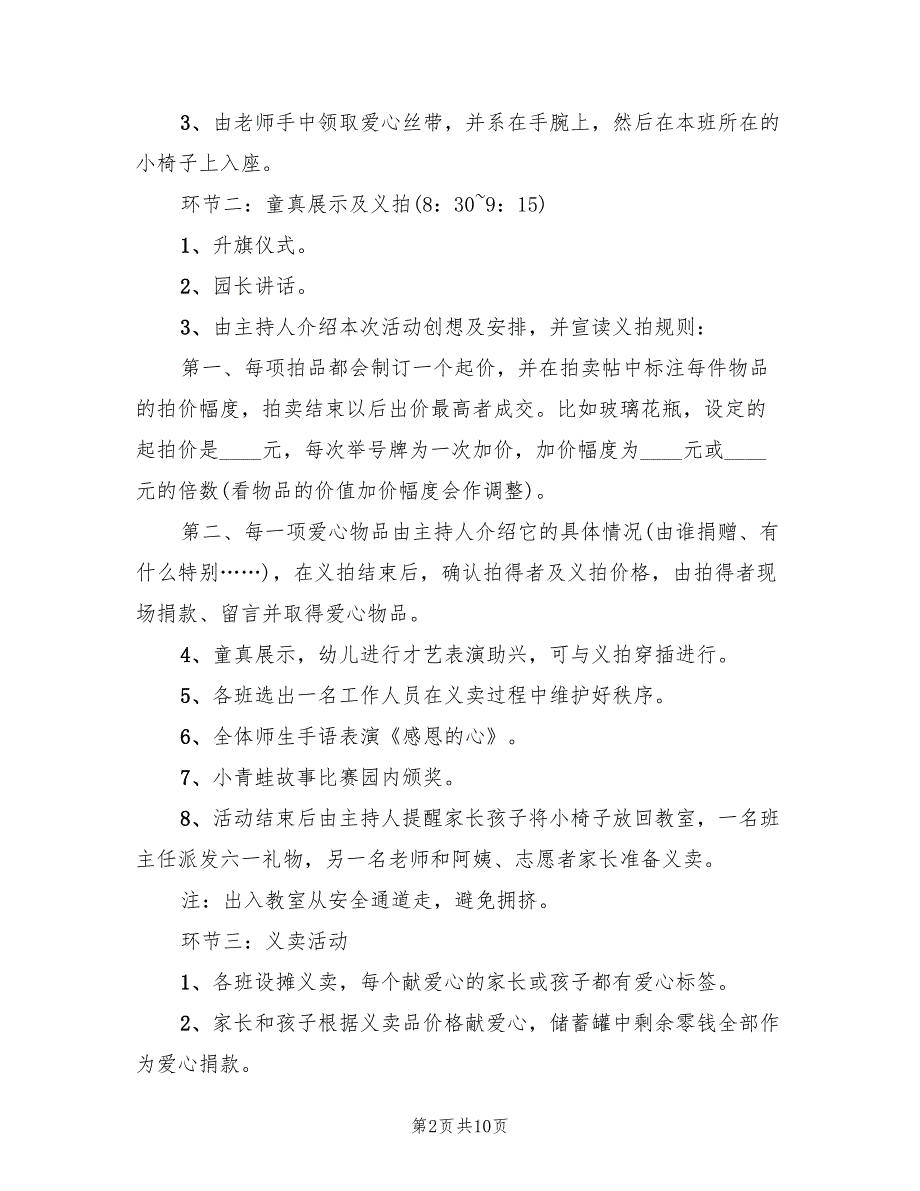 3、由老师手中领取爱心丝带，并系在手腕上，然后在本班所在的
小椅子上入座。
环节二：童真展示及义拍(8：30~9：15)
1、升旗仪式。
2、园长讲话。
3、由主持人介绍本次活动创想及安排，并宣读义拍规则：
第一、每项拍品都会制订一个起价，并在拍卖帖中标注每件物品
的拍价幅度，拍卖结束以后出价最高者成交。比如玻璃花瓶，设定的
起拍价是____元，每次举号牌为一次加价，加价幅度为____元或____
元的倍数(看物品的价值加价幅度会作调整)。
第二、每一项爱心物品由主持人介绍它的具体情况(由谁捐赠、有
什么特别……)，在义拍结束后，确认拍得者及义拍价格，由拍得者现
场捐款、留言并取得爱心物品。
4、童真展示，幼儿进行才艺表演助兴，可与义拍穿插进行。
5、各班选出一名工作人员在义卖过程中维护好秩序。
6、全体师生手语表演《感恩的心》。
7、小青蛙故事比赛园内颁奖。
8、活动结束后由主持人提醒家长孩子将小椅子放回教室，一名班
主任派发六一礼物，另一名老师和阿姨、志愿者家长准备义卖。
注：出入教室从安全通道走，避免拥挤。
环节三：义卖活动
1、各班设摊义卖，每个献爱心的家长或孩子都有爱心标签。
2、家长和孩子根据义卖品价格献爱心，储蓄罐中剩余零钱全部作
为爱心捐款。
第2页共10页